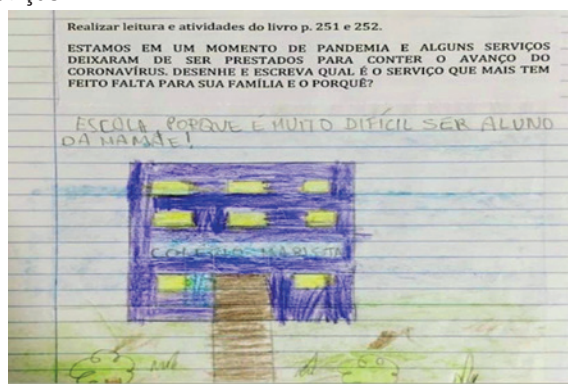 Realizar leitura e atividades do livro p. 251 e 252.
ESTAMOS EM UM MOMENTO DE PANDEMIA E ALGUNS SERVIÇOS
DEIXARAM DE SER PRESTADOS PARA CONTER O AVANÇO DO
CORONAVÍRUS. DESENHE E ESCREVA QUAL É O SERVIÇO QUE MAIS TEM
FEITO FALTA PARA SUA FAMÍLIA E O PORQUÊ?
ESCOLA PORQUE É MUITO DIFÍCIL SER ALUNO
DA MAMÃE!
COLÉGIO MARISTA